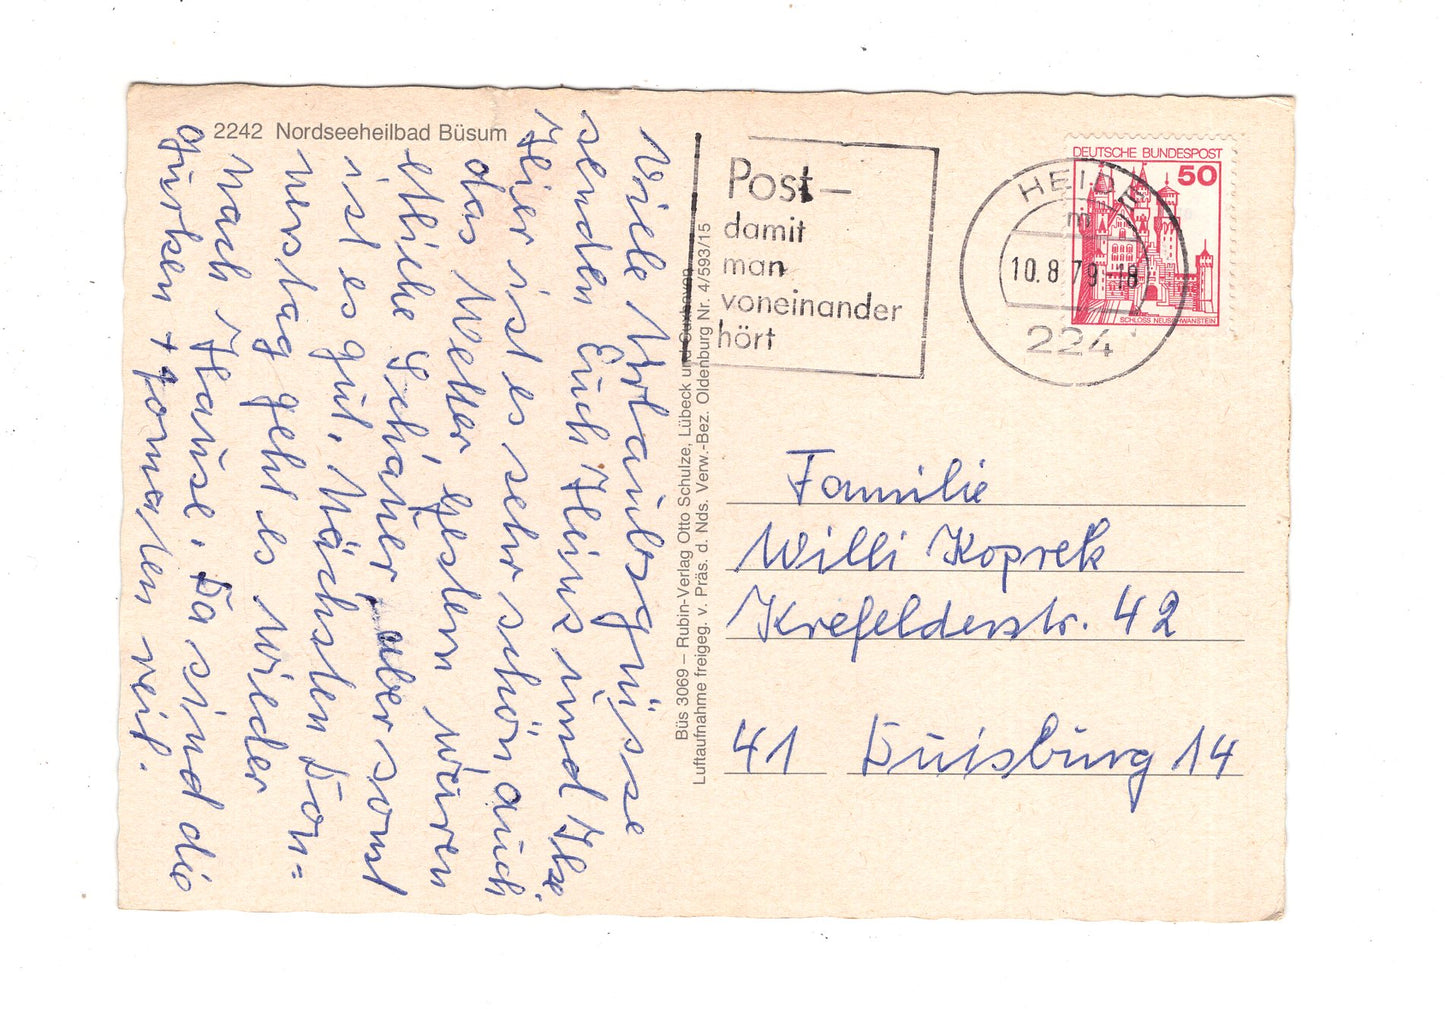 2242 Nordseeheilbad Büsum
Viele Urlaubsgrüsse
senden Euch Heinz und Ilse.
Hier ist es sehr schön auch
das Wetter, gestern wuren
etliche Schauer, aber sonst
ist es gut. Nächsten Don=
nerstag geht es wieder
nach Hause. Da sind die
Gurken + Tomaten reif.
Büs 3069 – Rubin-Verlag Otto Schulze, Lübeck und Cuxhaven
Luftaufnahme freigeg. v. Präs. d. Nds. Verw.-Bez. Oldenburg Nr. 4/593/15
Post –
damit
man
voneinander
hört
HEIDE
m
10.8.79-18
224
DEUTSCHE BUNDESPOST
50
SCHLOSS NEUSCHWANSTEIN
Familie
Willi Koprek
Krefelderstr. 42
41 Duisburg 14